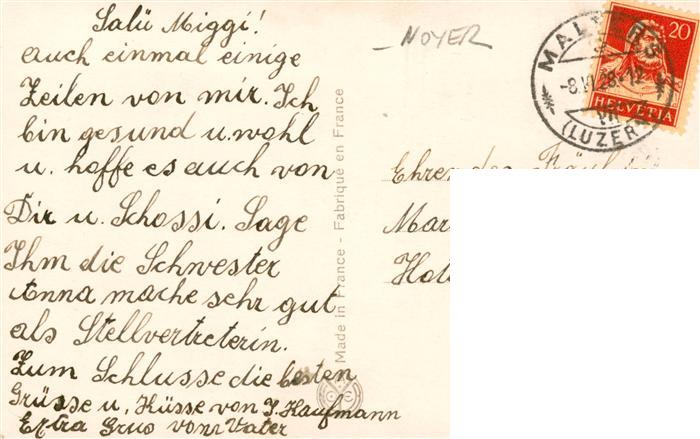 Salü Miggi!
auch einmal einige
Zeilen von mir. Ich
bin gesund u. wohl
u. hoffe es auch von
Dir u. Schossi. Sage
Ihm die Schwester
Anna mache sehr gut
als Stellvertreterin.
Zum Schlusse die besten
Grüsse u. Küsse von J. Kaufmann
Extra Gruo vom Vater
Made in France - Fabriqué en France
NOYER
MALTERS
-8.VI.28.-12
(LUZERN)
20
HELVETIA
Ehren den
Mar
Hot